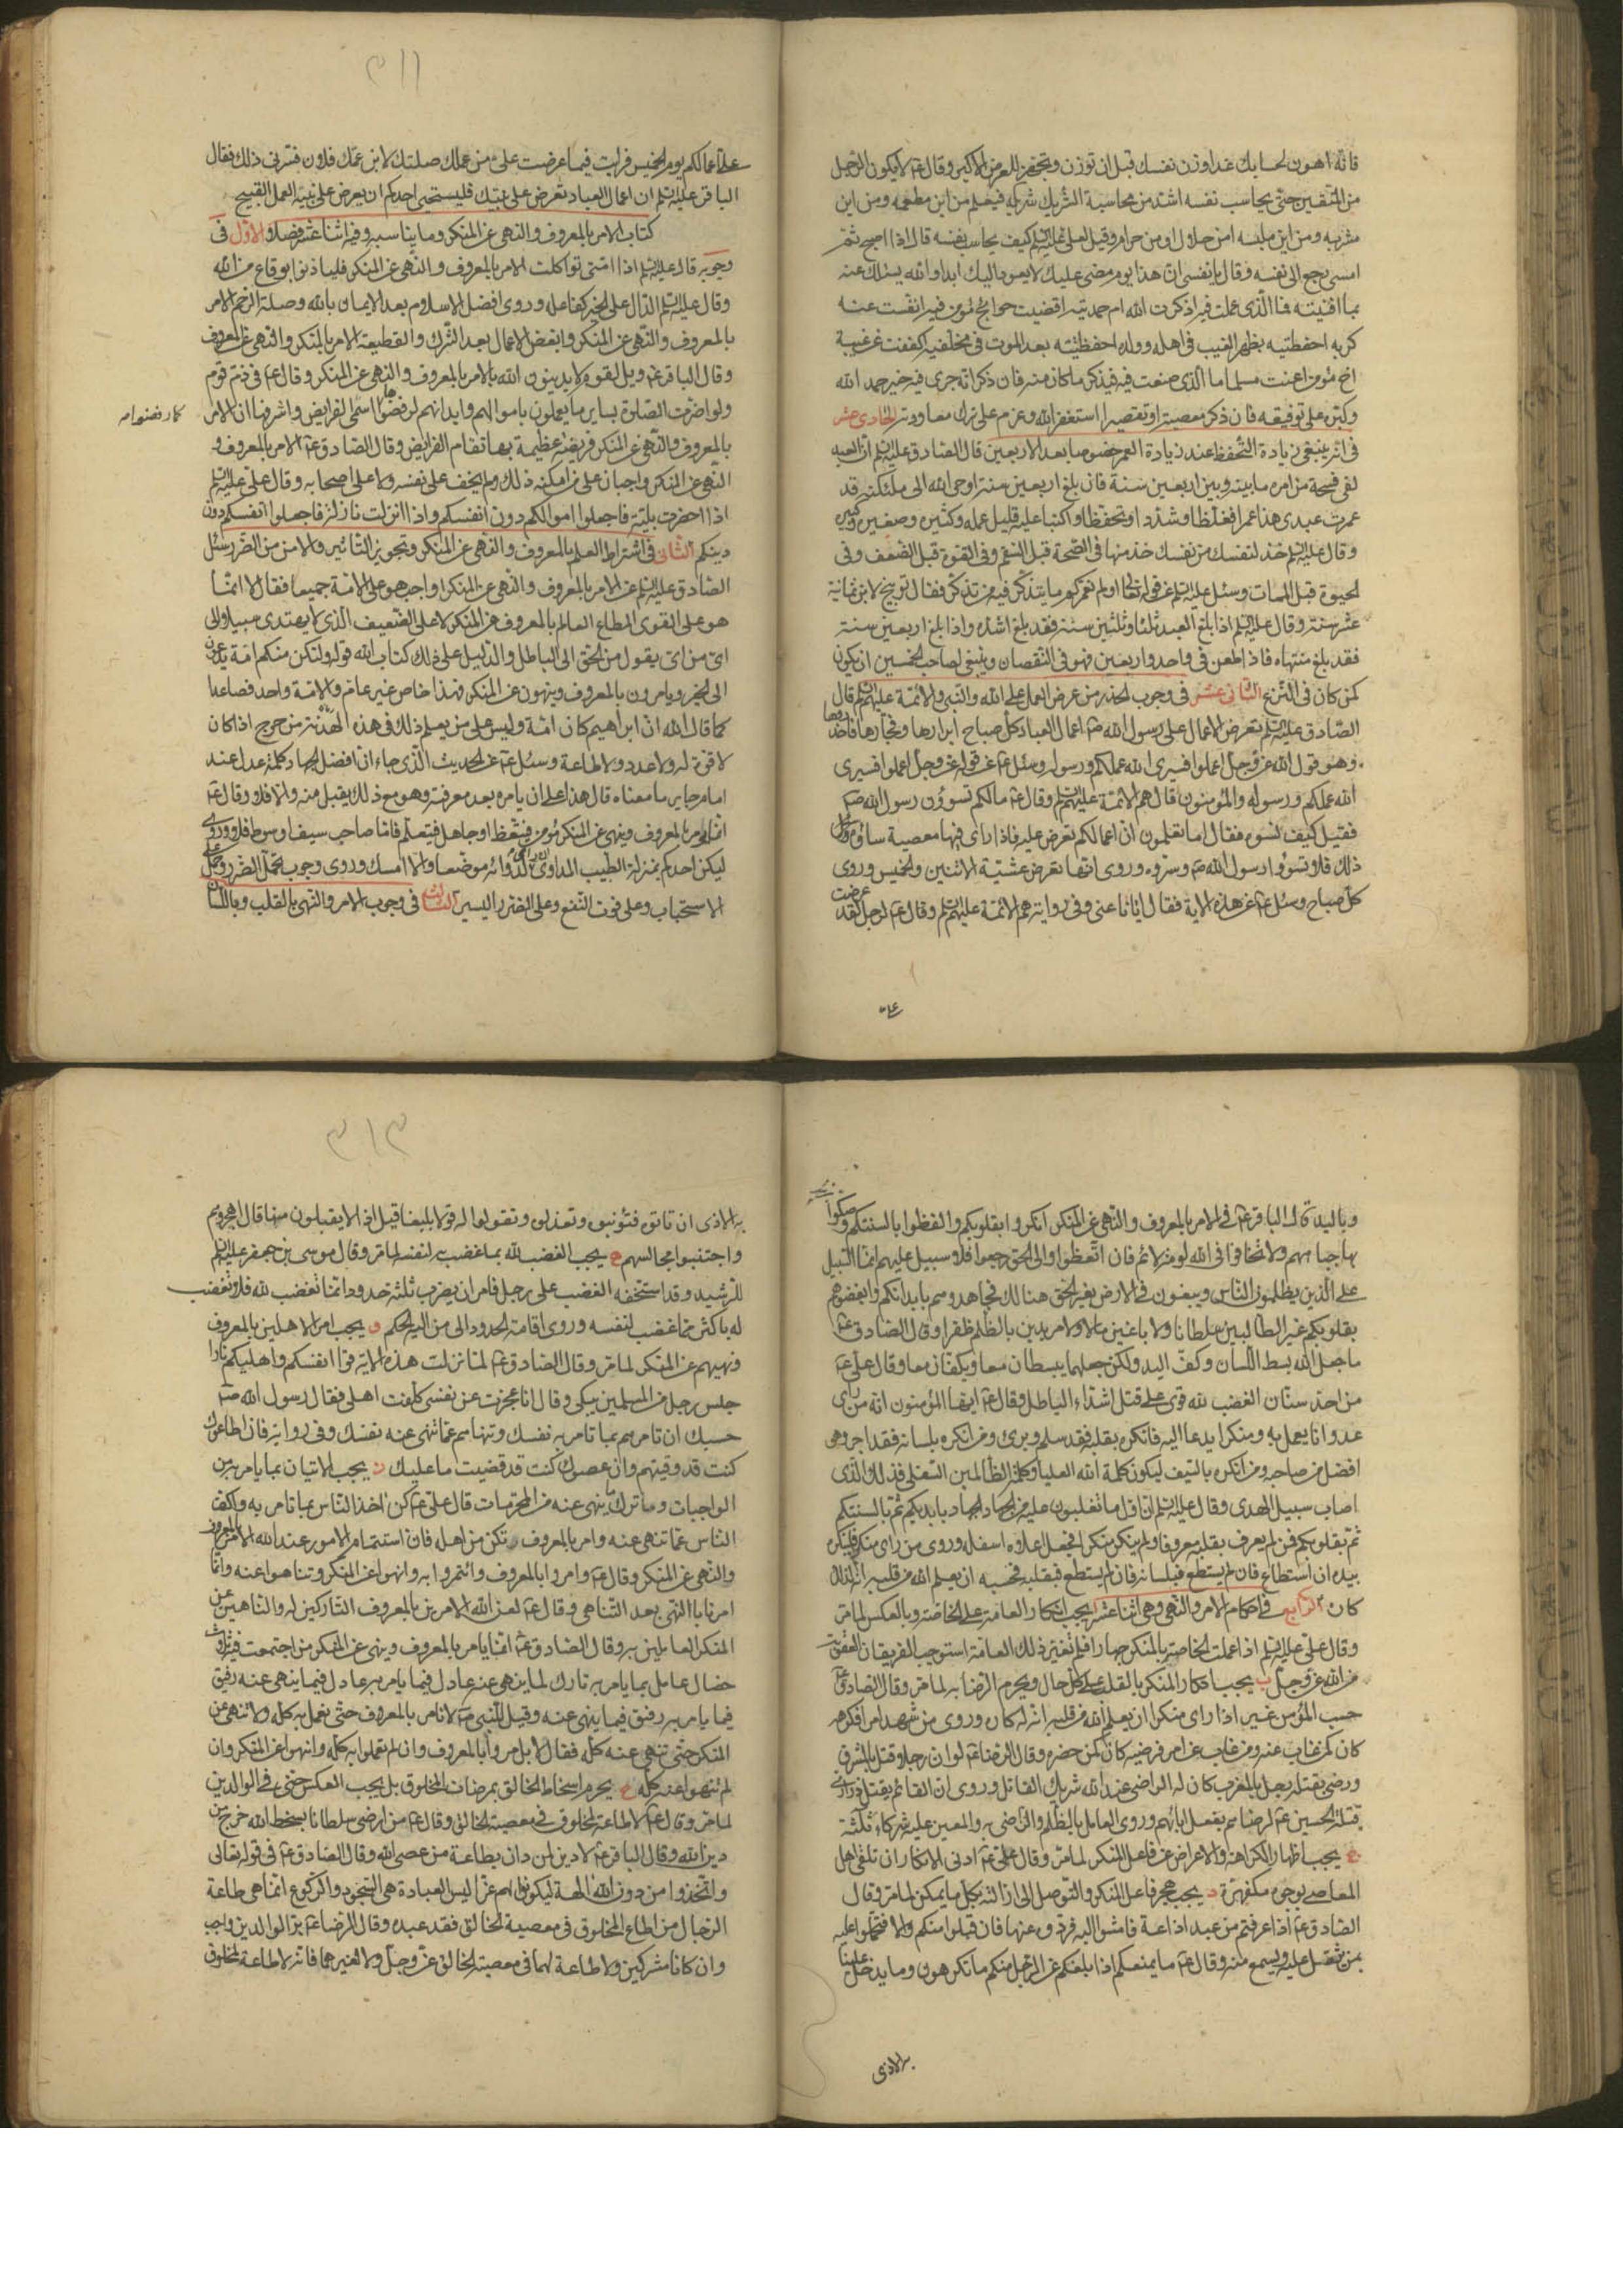 فانه اهون لحسابك غدا وزن نفسك قبل ان توزن وتجهز للعرض الاكبر وقال ع لا يكون الرجل
من المتقين حتى يحاسب نفسه اشد من محاسبة الشريك شريكه فيعلم من اين مطعمه ومن اين
مشربه ومن اين ملبسه امن حلال او من حرام وقيل لعلى عليه السلم كيف يحاسب نفسه قال اذا اصبح ثم
امسى رجع الى نفسه وقال يا نفسى ان هذا يوم مضى عليك لا يعود اليك ابدا والله يسئلك عنه
بما افنيته فما الذى عملت فيه اذكرت الله ام حمدتيه اقضيت حوايج مؤمن فيه انفست عنه
كربه احفظتيه بظهر الغيب فى اهله وولده احفظتيه بعد الموت فى مخلفيه اكففت عن غيبة
اخ مؤمن اعنت مسلما ما الذى صنعت فيه فيذكر ما كان منه فان ذكر انه جرى فيه خير حمد الله
وكبره على توفيقه فان ذكر معصية او تقصيرا استغفر الله وعزم على ترك معاودته الحادى عشر
فى انه ينبغى زيادة التحفظ عند زيادة العمر خصوصا بعد الاربعين قال الصادق عليه السلم ان العبد
لفى فسحة من امره ما بينه وبين اربعين سنة فان بلغ اربعين سنة اوحى الله الى ملئكته قد
عمرت عبدى هذا عمرا فغلظا وشددا وتحفظا واكتبا عليه قليل عمله وكثيره وصغيره وكبيره
وقال عليه السلم خذ لنفسك من نفسك خذ منها فى الصحة قبل السقم وفى القوة قبل الضعف وفى
الحيوة قبل الممات وسئل عليه السلم عن قوله تعالى اولم نعمركم ما يتذكر فيه من تذكر فقال توبيخ لابن ثمانية
عشر سنة وقال عليه السلم اذا بلغ العبد ثلثا وثلثين سنة فقد بلغ اشده واذا بلغ اربعين سنة
فقد بلغ منتهاه فاذا طعن فى واحد واربعين فهو فى النقصان وينبغى لصاحب الخمسين ان يكون
كمن كان فى النزع الثانى عشر فى وجوب الحذر من عرض العمل على الله والنبى والائمة عليهم السلم قال
الصادق عليه السلم تعرض الاعمال على رسول الله ص اعمال العباد كل صباح ابرارها وفجارها فاحذروها
وهو قول الله عز وجل اعملوا فسيرى الله عملكم ورسوله وسئل ع عن قوله عز وجل اعملوا فسيرى
الله عملكم ورسوله والمؤمنون قال هم الائمة عليهم السلم وقال ع ما لكم تسوؤن رسول الله ص
فقيل كيف نسوءه فقال اما تعلمون ان اعمالكم تعرض عليه فاذا راى فيها معصية ساءه
ذلك فلا تسوؤا رسول الله ص وسروه وروى انها تعرض عشية الاثنين والخميس وروى
كل صباح وسئل ع عن هذه الاية فقال ايانا عنى وفى رواية هم الائمة عليهم السلم وقال ع لرجل لقد عرضت
على
٣١١
على اعمالكم يوم الخميس فرايت فيما عرضت على من عملك صلتك لابن عمك فلان فسرنى ذلك فقال
الباقر عليه السلم ان اعمال العباد تعرض على نبيك فليستحيى احدكم ان يعرض على نبيه العمل القبيح
كتاب الامر بالمعروف والنهى عن المنكر وما يناسبه وفيه اثنا عشر فصلا الاول فى
وجوبه قال عليه السلم اذا امتى تواكلت الامر بالمعروف والنهى عن المنكر فلياذنوا بوقاع من الله
وقال عليه السلم الدال على الخير كفاعله وروى افضل الاسلام بعد الايمان بالله وصلة الرحم الامر
بالمعروف والنهى عن المنكر وابغض الاعمال بعد الشرك والقطيعة الامر بالمنكر والنهى عن المعروف
وقال الباقر ع ويل لقوم لا يدينون الله بالامر بالمعروف والنهى عن المنكر وقال ع فى ذم قوم
ولو اضرت الصلوة بساير ما يعملون باموالهم وابدانهم لرفضوها اسمى الفرايض واشرفها ان الامر
كما رفضوا
بالمعروف والنهى عن المنكر فريضة عظيمة بها تقام الفرايض وقال الصادق ع الامر بالمعروف و
النهى عن المنكر واجبان على من امكنه ذلك ولم يخف على نفسه ولا على اصحابه وقال على عليه السلم
اذا حضرت بلية فاجعلوا اموالكم دون انفسكم واذا نزلت نازلة فاجعلوا انفسكم دون
دينكم الثانى فى اشتراط العلم بالمعروف والنهى عن المنكر وتجويز التاثير والامن من الضرر سئل
الصادق عليه السلم عن الامر بالمعروف والنهى عن المنكر اواجب هو على الامة جميعا فقال لا انما
هو على القوى المطاع العالم بالمعروف من المنكر لا على الضعيف الذى لا يهتدى سبيلا الى
اى من اى يقول من الحق الى الباطل والدليل على ذلك كتاب الله قوله ولتكن منكم امة يدعون
الى الخير ويامرون بالمعروف وينهون عن المنكر فهذا خاص غير عام والامة واحد فصاعدا
كما قال الله ان ابراهيم كان امة وليس على من يعلم ذلك فى هذه الهدنة من حرج اذا كان
لا قوة له ولا عدد ولا طاعة وسئل ع عن الحديث الذى جاء ان افضل الجهاد كلمة عدل عند
امام جاير ما معناه قال هذا على ان يامره بعد معرفته وهو مع ذلك يقبل منه والا فلا وقال ع
انما يؤمر بالمعروف وينهى عن المنكر مؤمن فيتعظ او جاهل فيتعلم فاما صاحب سيف او سوط فلا وروى
ليكن احدكم بمنزلة الطبيب المداوى ان راى موضعا لدوائه والا امسك وروى وجوب تحمل الضرر وحمل على
الاستحباب وعلى فوت النفع وعلى الضرر اليسير الثالث فى وجوب الامر والنهى بالقلب وباللسان
وباليد قال الباقر ع فى الامر بالمعروف والنهى عن المنكر انكروا بقلوبكم والفظوا بالسنتكم وصكوا
بها جباههم ولا تخافوا فى الله لومة لائم فان اتعظوا والى الحق رجعوا فلا سبيل عليهم انما السبيل
على الذين يظلمون الناس ويبغون فى الارض بغير الحق هنالك فجاهدوهم بابدانكم وابغضوهم
بقلوبكم غير الطالبين سلطانا ولا باغين مالا ولا مريدين بالظلم ظفرا وقال الصادق ع
ما جعل الله بسط اللسان وكف اليد ولكن جعلهما يبسطان معا ويكفان معا وقال على ع
من احد سنان الغضب لله قوى على قتل اشداء الباطل وقال ع ايها المؤمنون انه من راى
عدوانا يعمل به ومنكرا يدعا اليه فانكره بقلبه فقد سلم وبرئ ومن انكره بلسانه فقد اجر وهو
افضل من صاحبه ومن انكره بالسيف ليكون كلمة الله العليا وكلمة الظالمين السفلى فذلك الذى
اصاب سبيل الهدى وقال عليه السلم ان اول ما تغلبون عليه من الجهاد الجهاد بايديكم ثم بالسنتكم
ثم بقلوبكم فمن لم يعرف بقلبه معروفا ولم ينكر منكرا فجعل اعلاه اسفله وروى من راى منكرا فلينكر
بيده ان استطاع فان لم يستطع فبلسانه فان لم يستطع فبقلبه فحسبه ان يعلم الله من قلبه انه لذلك
كاره الرابع فى احكام الامر والنهى وهى اثنا عشر ا يجب انكار العامة على الخاصة وبالعكس لما مر
وقال على عليه السلم اذا عملت الخاصة بالمنكر جهارا فلم تغير ذلك العامة استوجب الفريقان العقوبة
من الله عز وجل ب يجب انكار المنكر بالقلب على كل حال ويحرم الرضا به لما مر وقال الصادق ع
حسب المؤمن غيرا اذا راى منكرا ان يعلم الله من قلبه انه له كاره وروى من شهد امرا فكرهه
كان كمن غاب عنه ومن غاب عن امر فرضيه كان كمن حضره وقال الرضا ع لو ان رجلا قتل بالمشرق
ورضى بقتله رجل بالمغرب كان له الراضى عند الله شريك القاتل وروى ان القائم يقتل ذرارى
قتلة الحسين ع لرضاهم بفعل ابائهم وروى العامل بالظلم والراضى به والمعين عليه شركاء ثلثة
ج يجب اظهار الكراهة والاعراض عن فاعل المنكر لما مر وقال على ع ادنى الانكار ان تلقى اهل
المعاصى بوجوه مكفهرة د يجب هجر فاعل المنكر والتوصل الى ازالته بكل ما يمكن لما مر وقال
الصادق ع اذا عرفتم من عبد اذاعة فامشوا اليه فردوه عنها فان قبل منكم والا فتحملوا عليه
بمن يثقل عليه ويسمع منه وقال ع ما يمنعكم اذا بلغكم عن الرجل منكم ما تكرهون وما يدخل علينا
به الاذى
٣١٣
به الاذى ان تاتوه فتؤنبوه وتعذلوه وتقولوا له قولا بليغا قيل اذا لا يقبلون منا قال اهجروهم
واجتنبوا مجالسهم ه يجب الغضب لله بما غضب به لنفسه لما مر وقال موسى بن جعفر عليه السلم
للرشيد وقد استخفه الغضب على رجل فامر ان يضرب ثلثة حدود انما تغضب لله فلا تغضب
له باكثر مما غضب لنفسه وروى اقامة الحدود الى من اليه الحكم و يجب امر الاهلين بالمعروف
ونهيهم عن المنكر لما مر وقال الصادق ع لما نزلت هذه الاية قوا انفسكم واهليكم نارا
جلس رجل من المسلمين يبكى وقال انا عجزت عن نفسى كلفت اهلى فقال رسول الله ص
حسبك ان تامرهم بما تامر به نفسك وتنهاهم عما تنهى عنه نفسك وفى رواية فان اطاعوك
كنت قد وقيتهم وان عصوك كنت قد قضيت ما عليك ز يجب الاتيان بما يامر به من
الواجبات وترك ما ينهى عنه من المحرمات قال على ع كن اخذ الناس بما تامر به واكف
الناس عما تنهى عنه وامر بالمعروف تكن من اهله فان استتمام الامور عند الله الامر بالمعروف
والنهى عن المنكر وقال ع وامروا بالمعروف وائتمروا به وانهوا عن المنكر وتناهوا عنه وانما
امرنا بالنهى بعد التناهى وقال ع لعن الله الامرين بالمعروف التاركين له والناهين عن
المنكر العاملين به وقال الصادق ع انما يامر بالمعروف وينهى عن المنكر من اجتمعت فيه ثلث
خصال عامل بما يامر به تارك لما ينهى عنه عادل فيما يامر به عادل فيما ينهى عنه رفيق
فيما يامر به رفيق فيما ينهى عنه وقيل للنبى ص لا نامر بالمعروف حتى نعمل به كله ولا ننهى عن
المنكر حتى ننتهى عنه كله فقال لا بل مروا بالمعروف وان لم تعملوا به كله وانهوا عن المنكر وان
لم تنتهوا عنه كله ح يحرم اسخاط الخالق بمرضات المخلوق بل يجب العكس حتى فى الوالدين
لما مر وقال ع لا طاعة لمخلوق فى معصية الخالق وقال ع من ارضى سلطانا بسخط الله خرج من
دين الله وقال الباقر ع لا دين لمن دان بطاعة من عصى الله وقال الصادق ع فى قوله تعالى
واتخذوا من دون الله الهة ليكونوا لهم عزا ليس العبادة هى السجود والركوع انما هى طاعة
الرجال من اطاع المخلوق فى معصية الخالق فقد عبده وقال الرضا ع بر الوالدين واجب
وان كانا مشركين ولا طاعة لهما فى معصية الخالق عز وجل ولا لغيرهما فانه لا طاعة لمخلوق